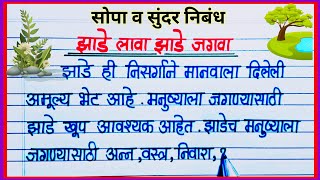 सोपा व सुंदर निबंध
झाडे लावा झाडे जगवा
झाडे ही निसर्गाने मानवाला दिलेली
अमूल्य भेट आहे. मनुष्याला जगण्यासाठी
झाडे खूप आवश्यक आहेत. झाडेच मनुष्याला
जगण्यासाठी अन्न, वस्त्र, निवारा,